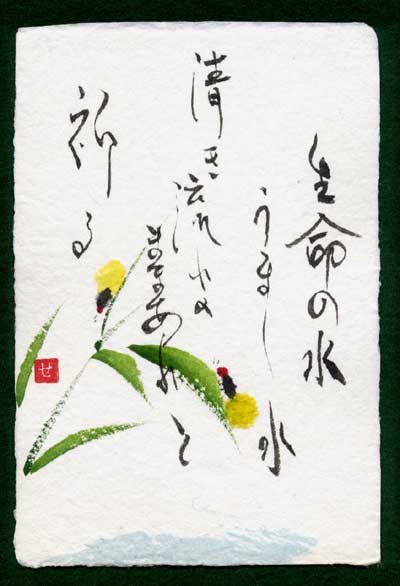 生命の水
うまし水
清き流れの
ままあれと
祈る
せ